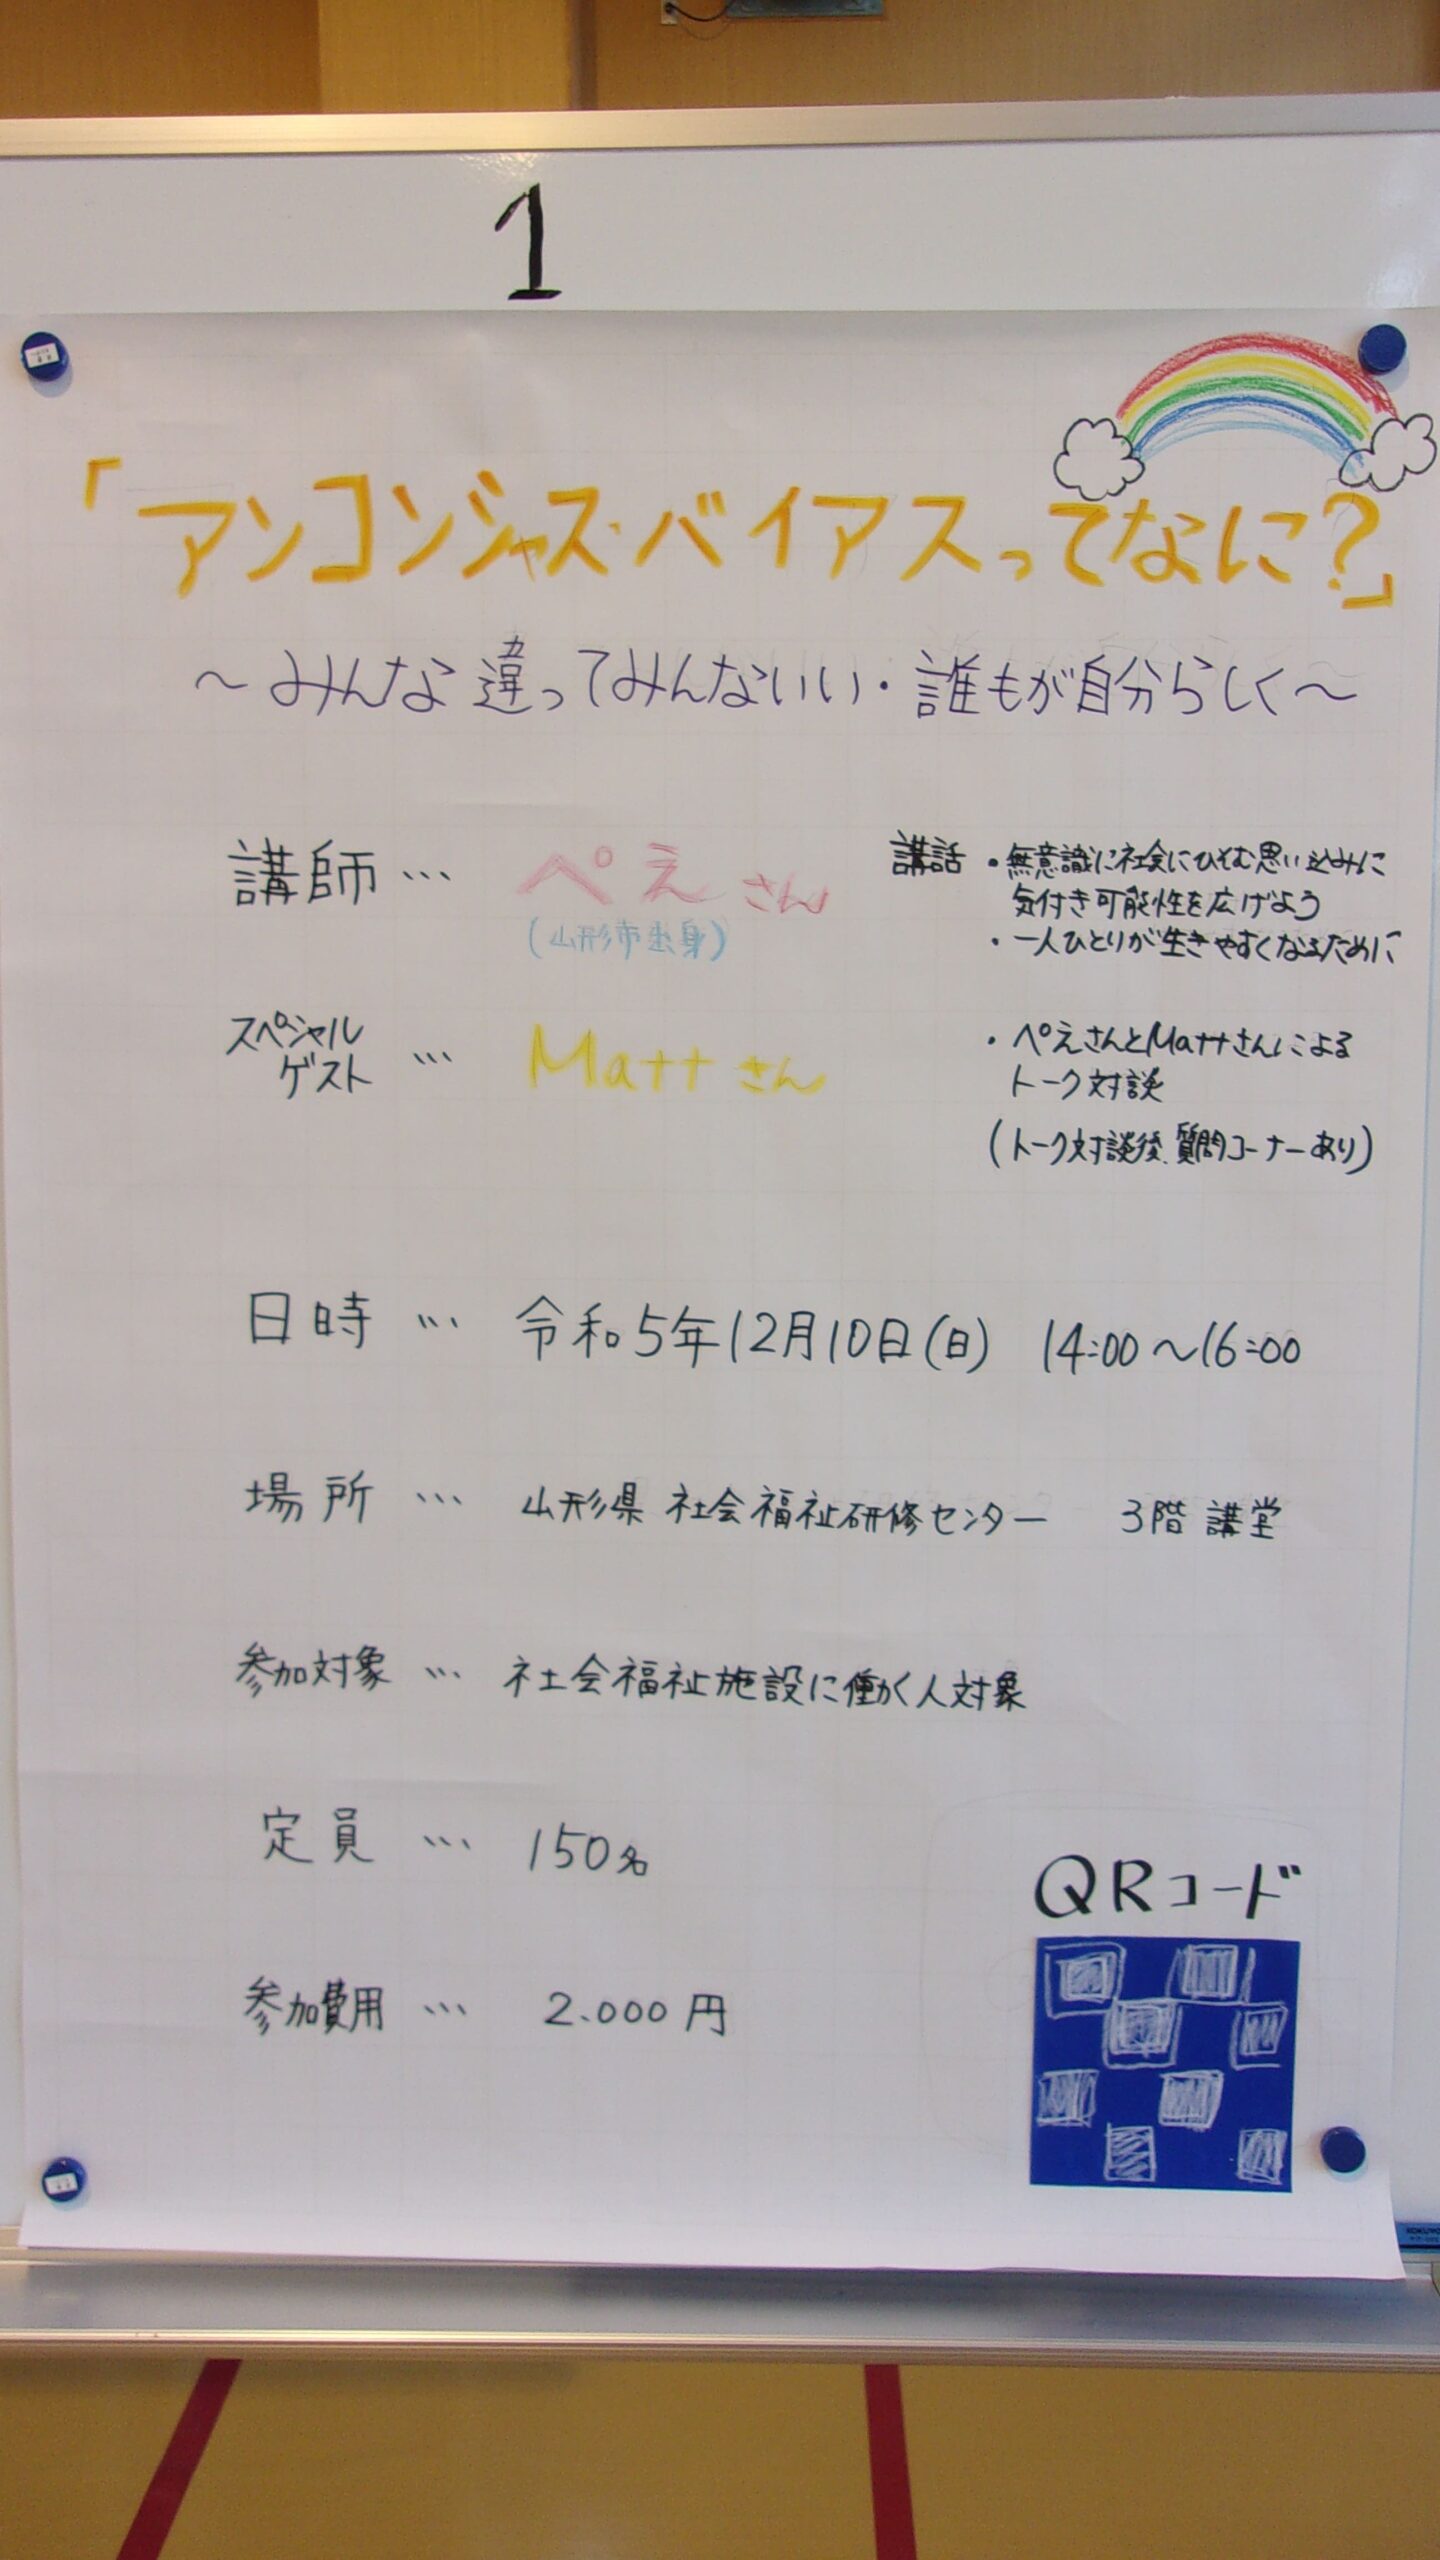 1
「アンコンシャス・バイアスってなに？」
～みんな違ってみんないい・誰もが自分らしく～
講師… ぺえさん
(山形市出身)
講話 ・無意識に社会にひそむ思い込みに
気付き可能性を広げよう
・一人ひとりが生きやすくなるために
スペシャル
ゲスト … Mattさん
・ぺえさんとMattさんによる
トーク対談
(トーク対談後、質問コーナーあり)
日時 … 令和5年12月10日(日) 14:00～16:00
場所 … 山形県 社会福祉研修センター 3階 講堂
参加対象 … 社会福祉施設に働く人対象
定員 … 150名
参加費用 … 2.000円
QRコード